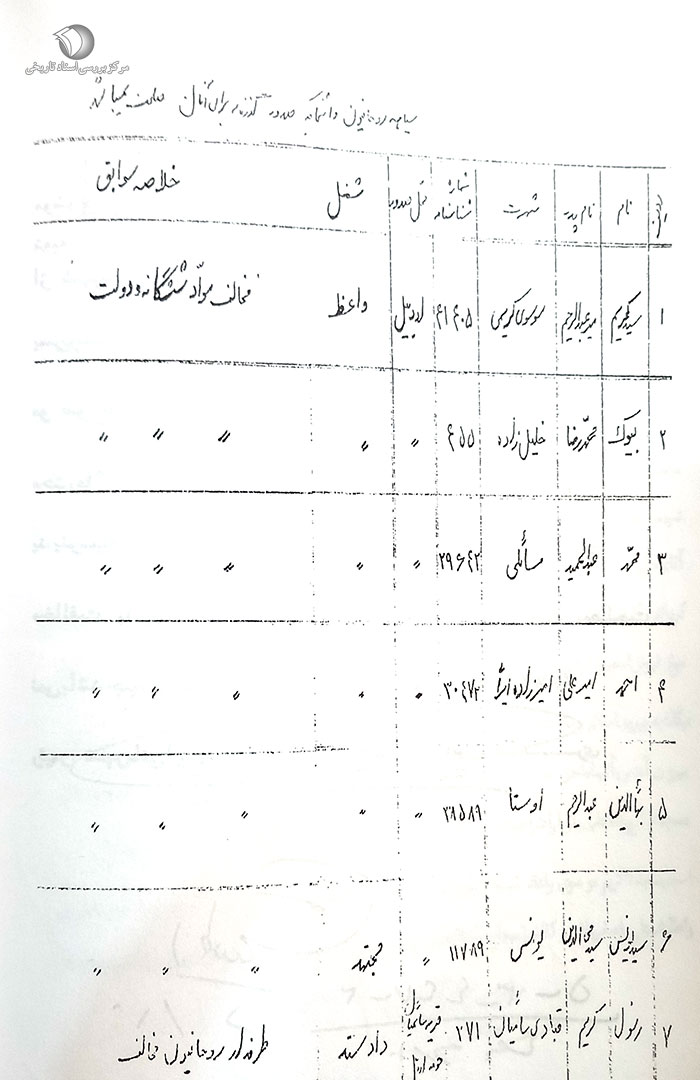 مرکز بررسی اسناد تاریخی
سیاهه روحانیون و وعاظیکه صدور گذرنامه برای آنان ممنوع میباشد
ردیف نام نام پدر شهرت شماره شناسنامه محل صدور شغل خلاصه سوابق
۱ سیدکریم میرعبدالرحیم موسوی کریمی ۴۱۴۰۵ اردبیل واعظ مخالف مواد ششگانه و دولت
۲ بیوک محمدرضا خلیل زاده ۴۵۵ " " " " "
۳ محمد عبدالحمید مسائلی ۲۹۶۴۲ " " " " "
۴ احمد امیرعلی امیرزاده ۳۰۴۷۲ " " " " "
۵ بهاءالدین عبدالرحیم اوستا ۳۸۵۸۹ " " " " "
۶ سیدیونس سیدمحی الدین یونسی ۱۱۷۸۹ " مجتهد " " "
۷ رسول کریم قبادی سامیان ۲۷۱ قریه سامیان حومه اردبیل طرفدار روحانیون مخالف